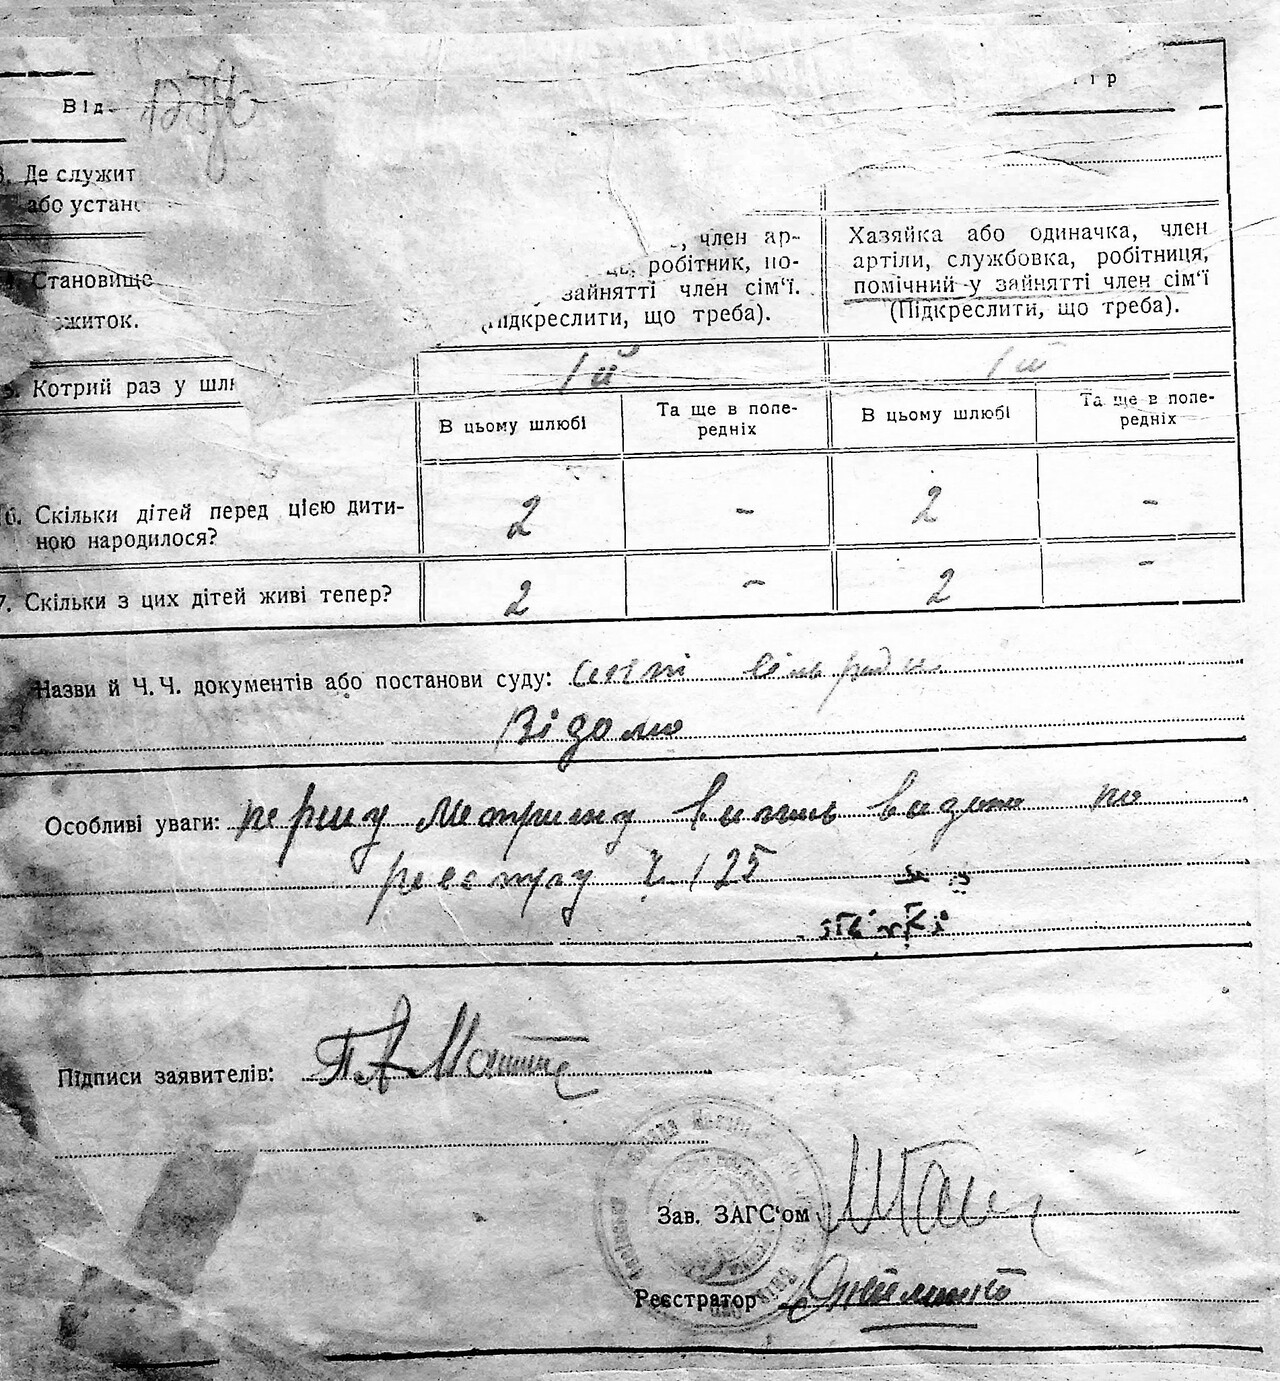 Від
ір
3. Де служит
або устан
, член ар-
робітник, по-
зайнятті член сім'ї.
(Підкреслити, що треба).
Хазяйка або одиначка, член
артіли, службовка, робітниця,
помічний у зайнятті член сім'ї
(Підкреслити, що треба).
4. Становище
житок.
5. Котрий раз у шлю
1й 1й
В цьому шлюбі
Та ще в попе-
редніх
В цьому шлюбі
Та ще в попе-
редніх
6. Скільки дітей перед цією дити-
ною народилося?
2 - 2 -
7. Скільки з цих дітей живі тепер?
2 - 2 -
Назви й Ч. Ч. документів або постанови суду:
Відомо
Особливі уваги: першу метричну випись видано по
реєстру Ч 125
Підписи заявителів:
Зав. ЗАГС'ом
Реєстратор